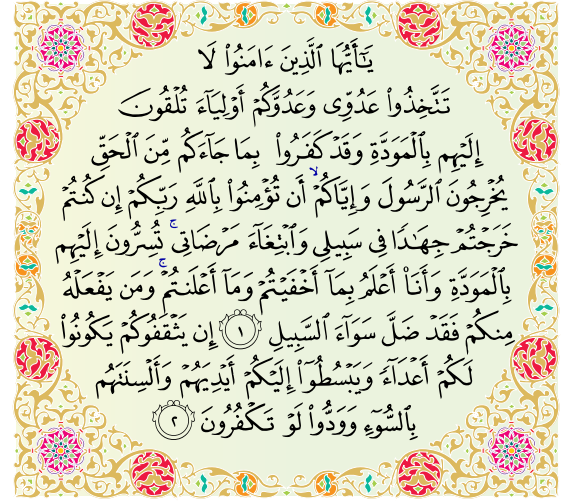 يَـٰٓأَيُّهَا ٱلَّذِينَ ءَامَنُوا۟ لَا
تَتَّخِذُوا۟ عَدُوِّى وَعَدُوَّكُمْ أَوْلِيَآءَ تُلْقُونَ
إِلَيْهِم بِٱلْمَوَدَّةِ وَقَدْ كَفَرُوا۟ بِمَا جَآءَكُم مِّنَ ٱلْحَقِّ
يُخْرِجُونَ ٱلرَّسُولَ وَإِيَّاكُمْ ۙ أَن تُؤْمِنُوا۟ بِٱللَّهِ رَبِّكُمْ إِن كُنتُمْ
خَرَجْتُمْ جِهَـٰدًا فِى سَبِيلِى وَٱبْتِغَآءَ مَرْضَاتِى ۚ تُسِرُّونَ إِلَيْهِم
بِٱلْمَوَدَّةِ وَأَنَا۠ أَعْلَمُ بِمَآ أَخْفَيْتُمْ وَمَآ أَعْلَنتُمْ ۚ وَمَن يَفْعَلْهُ
مِنكُمْ فَقَدْ ضَلَّ سَوَآءَ ٱلسَّبِيلِ ١ إِن يَثْقَفُوكُمْ يَكُونُوا۟
لَكُمْ أَعْدَآءً وَيَبْسُطُوٓا۟ إِلَيْكُمْ أَيْدِيَهُمْ وَأَلْسِنَتَهُم
بِٱلسُّوٓءِ وَوَدُّوا۟ لَوْ تَكْفُرُونَ ٢